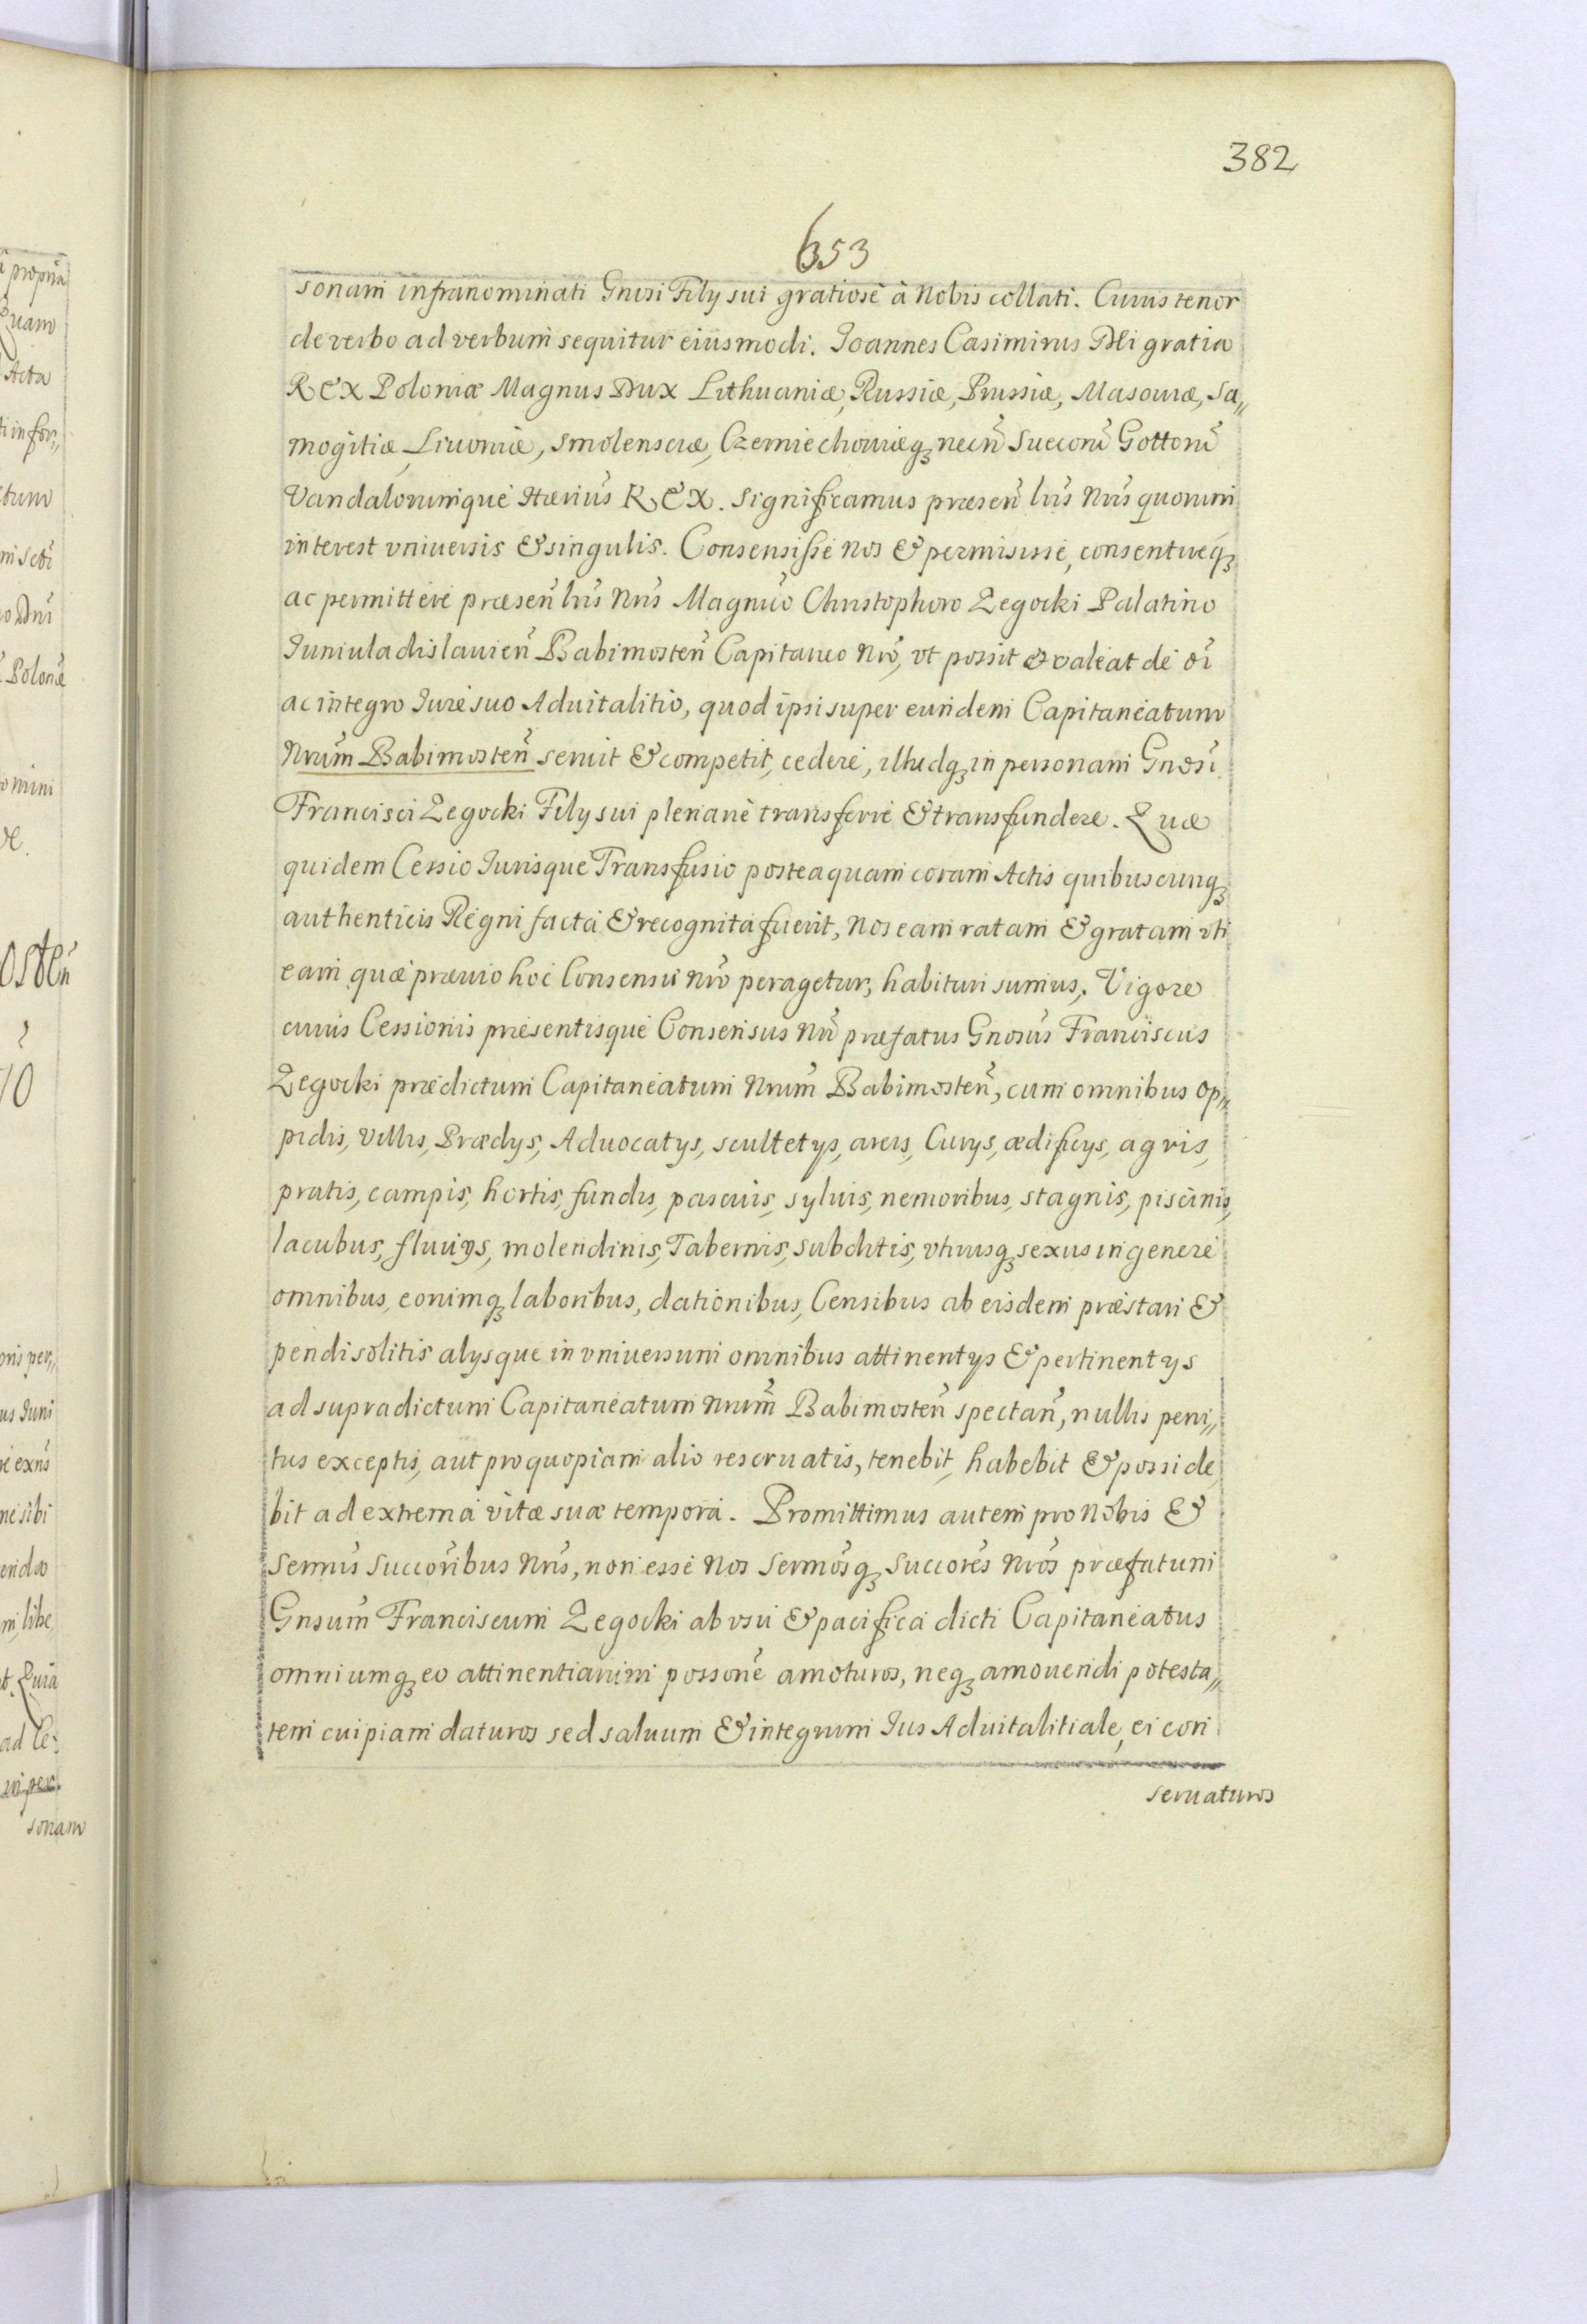 382
653
sonam infranominati Gnosi Filij sui gratiosè à Nobis collati. Cuius tenor
de verbo ad verbum sequitur eiusmodi. Joannes Casimirus Dei gratia
REX Poloniæ Magnus Dux Lithuaniæ, Russiæ, Prussiæ, Masouiæ, Sa„
mogitiæ, Liuoniæ, Smolensciæ, Czerniechouiæq, necñ Suecorũ Gottorũ
Vandalorumque Hærius REX. Significamus præseñ lrĩs Nrĩs quorum
interest vniuersis & singulis. Consensisse nos & permisisse, consentireq
ac permittere præseñ lrĩs Nrĩs Magnũo Christophoro Zegocki Palatino
Juniuladislauieñ Babimosteñ Capitaneo Nrõ, vt possit & valeat de oĩ
ac integro Jure suo Aduitalitio, quod ipsi super eundem Capitaneatum
Nrum̃ Babimosteñ seruit & competit, cedere, illudq in personam Gnosi
Francisci Zegocki Filij sui plenariè transferre & transfundere. Quæ
quidem Cessio Jurisque Transfusio posteaquam coram Actis quibuscunq
authenticis Regni facta & recognita fuerit, Nos eam ratam & gratam vti
eam quæ præuio hoc Consensu Nrõ peragetur, habituri sumus. Vigore
cuius Cessionis præsentisque Consensus Nrĩ præfatus Gnosus Franciscus
Zegocki prædictum Capitaneatum Nrum̃ Babimosteñ, cum omnibus Op„
pidis, Villis, Prædijs, Aduocatijs, scultetijs, areis, Curijs, ædificijs, agris,
pratis, campis, hortis, fundis, pascuis, syluis, nemoribus, stagnis, piscinis,
lacubus, fluuijs, molendinis, Tabernis, subditis, vtriusq sexus in genere
omnibus, eorumq laboribus, dationibus, Censibus ab eisdem præstari &
pendi solitis alijsque in vniuersum omnibus attinentijs & pertinentijs
ad supradictum Capitaneatum Nrum̃ Babimosteñ spectañ, nullis peni„
tus exceptis, aut pro quopiam alio reseruatis, tenebit, habebit & posside
bit ad extrema vitæ suæ tempora. Promittimus autem pro Nobis &
Sermis Succoribus Nrĩs, non esse Nos Sermosq Succores Nros præfatum
Gnsum̃ Franciscum Zegocki ab vsu & pacifica dicti Capitaneatus
omniumq eo attinentiarum possone amoturos, neq amouendi potesta„
tem cuipiam daturos sed saluum & integrum Jus Aduitalitiale, ei con
seruaturos